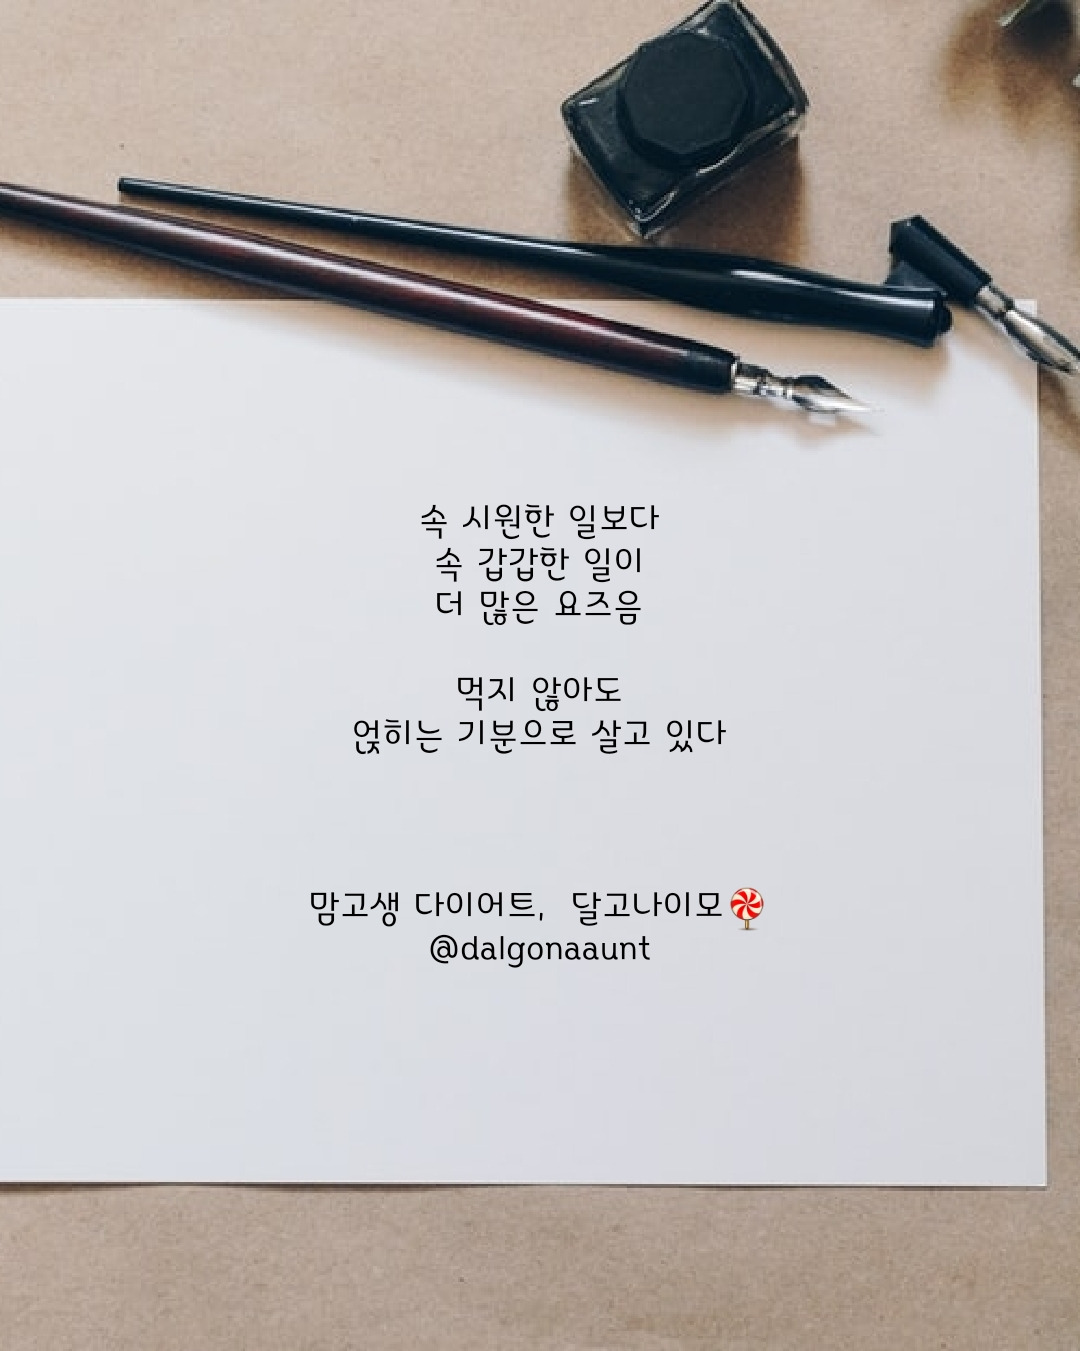 속 시원한 일보다
속 갑갑한 일이
더 많은 요즈음
먹지 않아도
얹히는 기분으로 살고 있다
맘고생 다이어트, 달고나이모🍭
@dalgonaaunt